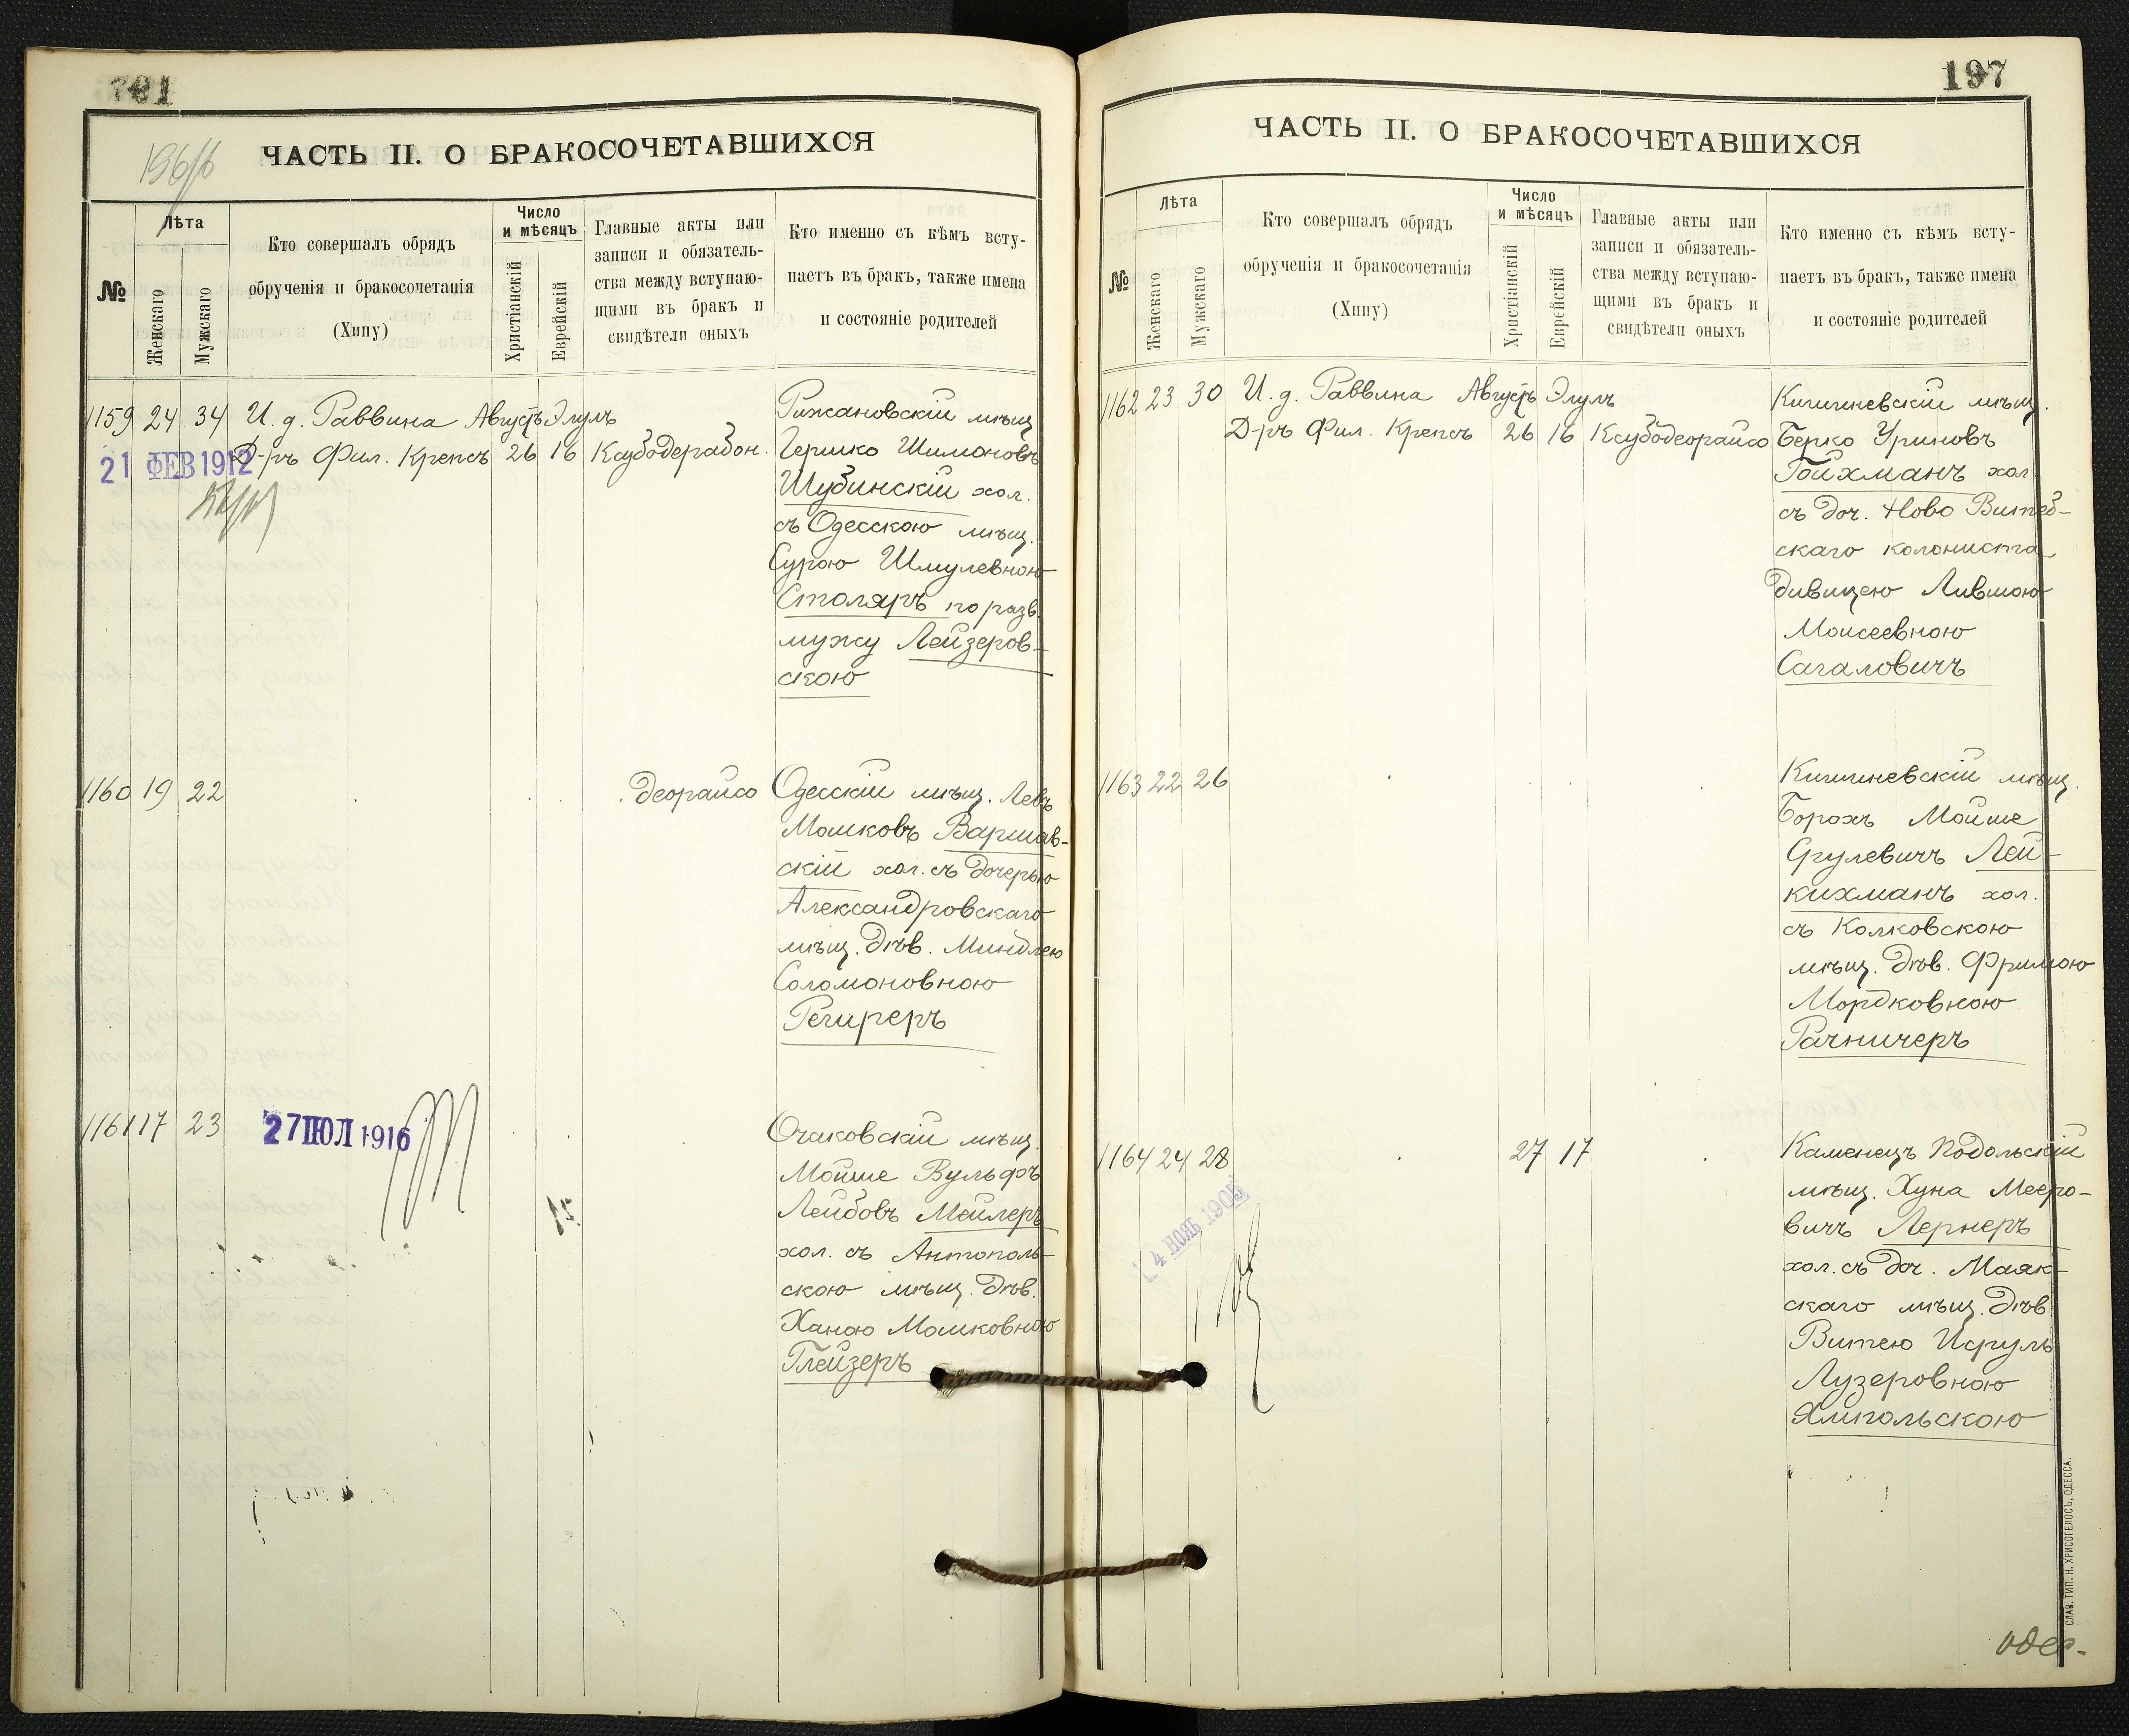 197
ЧАСТЬ II. О БРАКОСОЧЕТАВШИХСЯ
№
Лѣта
Женскаго
Мужскаго
Кто совершалъ обрядъ
обрученія и бракосочетанія
(Хипу)
Число
и мѣсяцъ
Христіанскій
Еврейскій
Главные акты или
записи и обязатель-
ства между вступаю-
щими въ бракъ и
свидѣтели оныхъ
Кто именно съ кѣмъ всту-
паетъ въ бракъ, также имена
и состояніе родителей
1159 24 34 И. д. Раввина Августъ Элулъ
Д-ръ Фил. Крепсъ 26 16
21 ФЕВ 1912
Рижановскій мѣщ.
Гершко Шимоновъ
Шубинскій хол.
съ Одесскою мѣщ.
Сурою Шмулевною
Столяръ по разв.
мужу Лейзеров-
скою
1160 19 22
деорайсо
Одесскій мѣщ. Левъ
Мошковъ Варшав-
скій хол. съ дочерью
Александровскаго
мѣщ. дѣв. Миндлею
Соломоновною
1161 17 23
27 ІЮЛ 1916
Очаковскій мѣщ.
Мойше Вульфъ
Лейбовъ Мейлеръ
хол. съ Антополь-
скою мѣщ. дѣв.
Ханою Мошковною
Глейзеръ
ЧАСТЬ II. О БРАКОСОЧЕТАВШИХСЯ
№
Лѣта
Женскаго
Мужскаго
Кто совершалъ обрядъ
обрученія и бракосочетанія
(Хипу)
Число
и мѣсяцъ
Христіанскій
Еврейскій
Главные акты или
записи и обязатель-
ства между вступаю-
щими въ бракъ и
свидѣтели оныхъ
Кто именно съ кѣмъ всту-
паетъ въ бракъ, также имена
и состояніе родителей
1162 23 30 И. д. Раввина Августъ Элулъ
Д-ръ Фил. Крепсъ 26 16 Ксубодеорайсо
Кишиневскій мѣщ.
Берко Уриновъ
Гойхманъ хол
съ доч. Ново Витеб-
скаго колониста
дивицею Лившою
Моисеевною
Сагаловичъ
1163 22 26
Кишиневскій мѣщ.
Борохъ Мойше
Срулевичъ Лей-
кихманъ хол.
съ Колковскою
мѣщ. дѣв. Фримою
Мордковною
Рачничеръ
1164 24 28
27 17
4 НОЯБ 1905
Каменецъ Подольскій
мѣщ. Хуна Мееро-
вичъ Лернеръ
хол. съ доч. Маяк-
скаго мѣщ. дѣв.
Витею Исруль
Лузеровною
Ямпольскою
СЛАВ. ТИП. Н. ХРИСОГЕЛОСЪ, ОДЕССА.